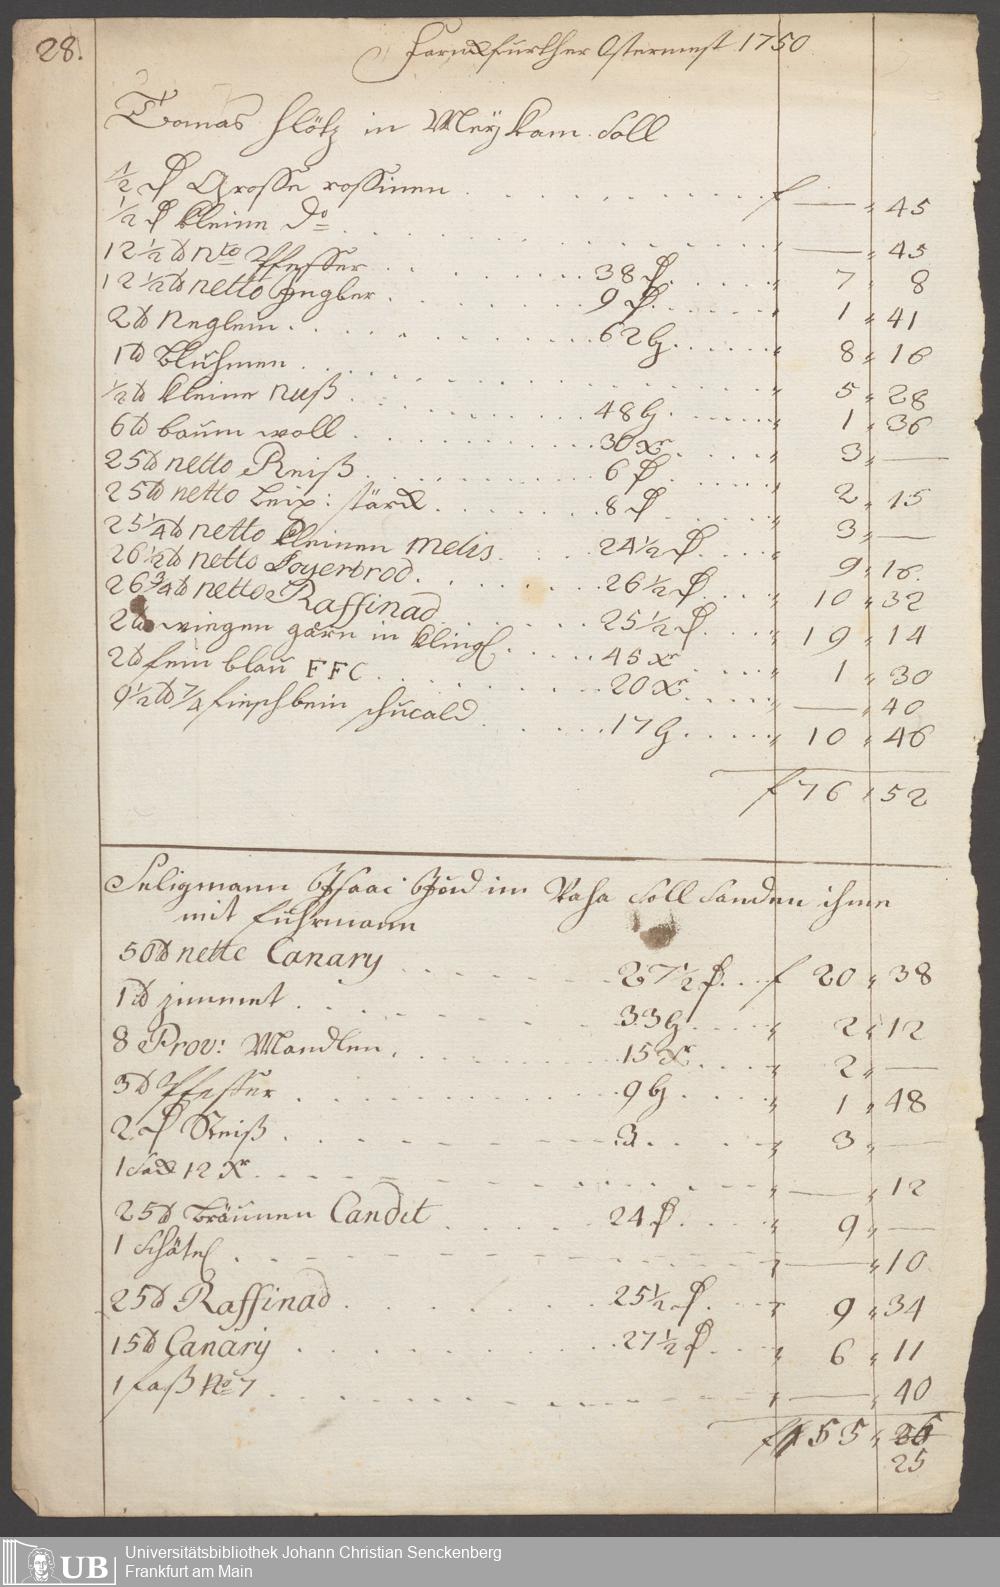 28.
Franckfurther Ostermest 1750
Tomas Klötz in Meykam. Soll
1/2 ℔ Grosse rossinen . . . . f — " 45
1/2 ℔ kleine do . . . . " — " 45
12 1/2 ℔ Nto Pfeffer . . . 38 . . . " 7 " 8
12 1/2 ℔ netto Jngber . . . 9 . . . " 1 " 41
2 ℔ Neglein . . . 62 . . . " 8 " 16
1 ℔ Bluhmen . . . . " 5 " 28
1/2 ℔ kleine nuß . . . 48 . . . " 1 " 36
6 ℔ baum woll . . . 30 Xr . . . " 3 " —
25 ℔ netto Reiß . . . 6 . . . " 2 " 15
25 ℔ netto Leip: stärck . . . 8 . . . " 3 " —
25 1/4 ℔ netto kleinen Melis . . . 24 1/2 . . . " 9 " 16
26 1/2 ℔ netto . . . 26 1/2 . . . " 10 " 32
26 3/4 ℔ netto Raffinad . . . 25 1/2 . . . " 19 " 14
2 ℔ garn in . . . 45 Xr . . . " 1 " 30
2 ℔ fein blau FFC . . . 20 Xr . . . " — " 40
9 1/2 ℔ 7/4 fischbein . . . 17 . . . " 10 " 46
f 76 " 52
Seligmann Isaac Jud im Vaha Soll Sanden ihme
mit fuhrmann
50 ℔ netto Canary . . . 27 1/2 . . . f 20 " 38
1 ℔ zimmet . . . 33 . . . " 2 " 12
8 Prov: Mandlen . . . 15 Xr . . . " 2 " —
3 ℔ Pfeffer . . . 9 . . . " 1 " 48
2 Reiß . . . 3 . . . " 3 " —
1 Sack 12 Xr . . . " — " 12
25 ℔ Bräunen Candit . . . 24 . . . " 9 " —
1 . . . " — " 10
25 ℔ Raffinad . . . 25 1/2 . . . " 9 " 34
15 ℔ Canary . . . 27 1/2 . . . " 6 " 11
1 faß No 7 . . . " — " 40
f 55 " 26
25
UB
Universitätsbibliothek Johann Christian Senckenberg
Frankfurt am Main